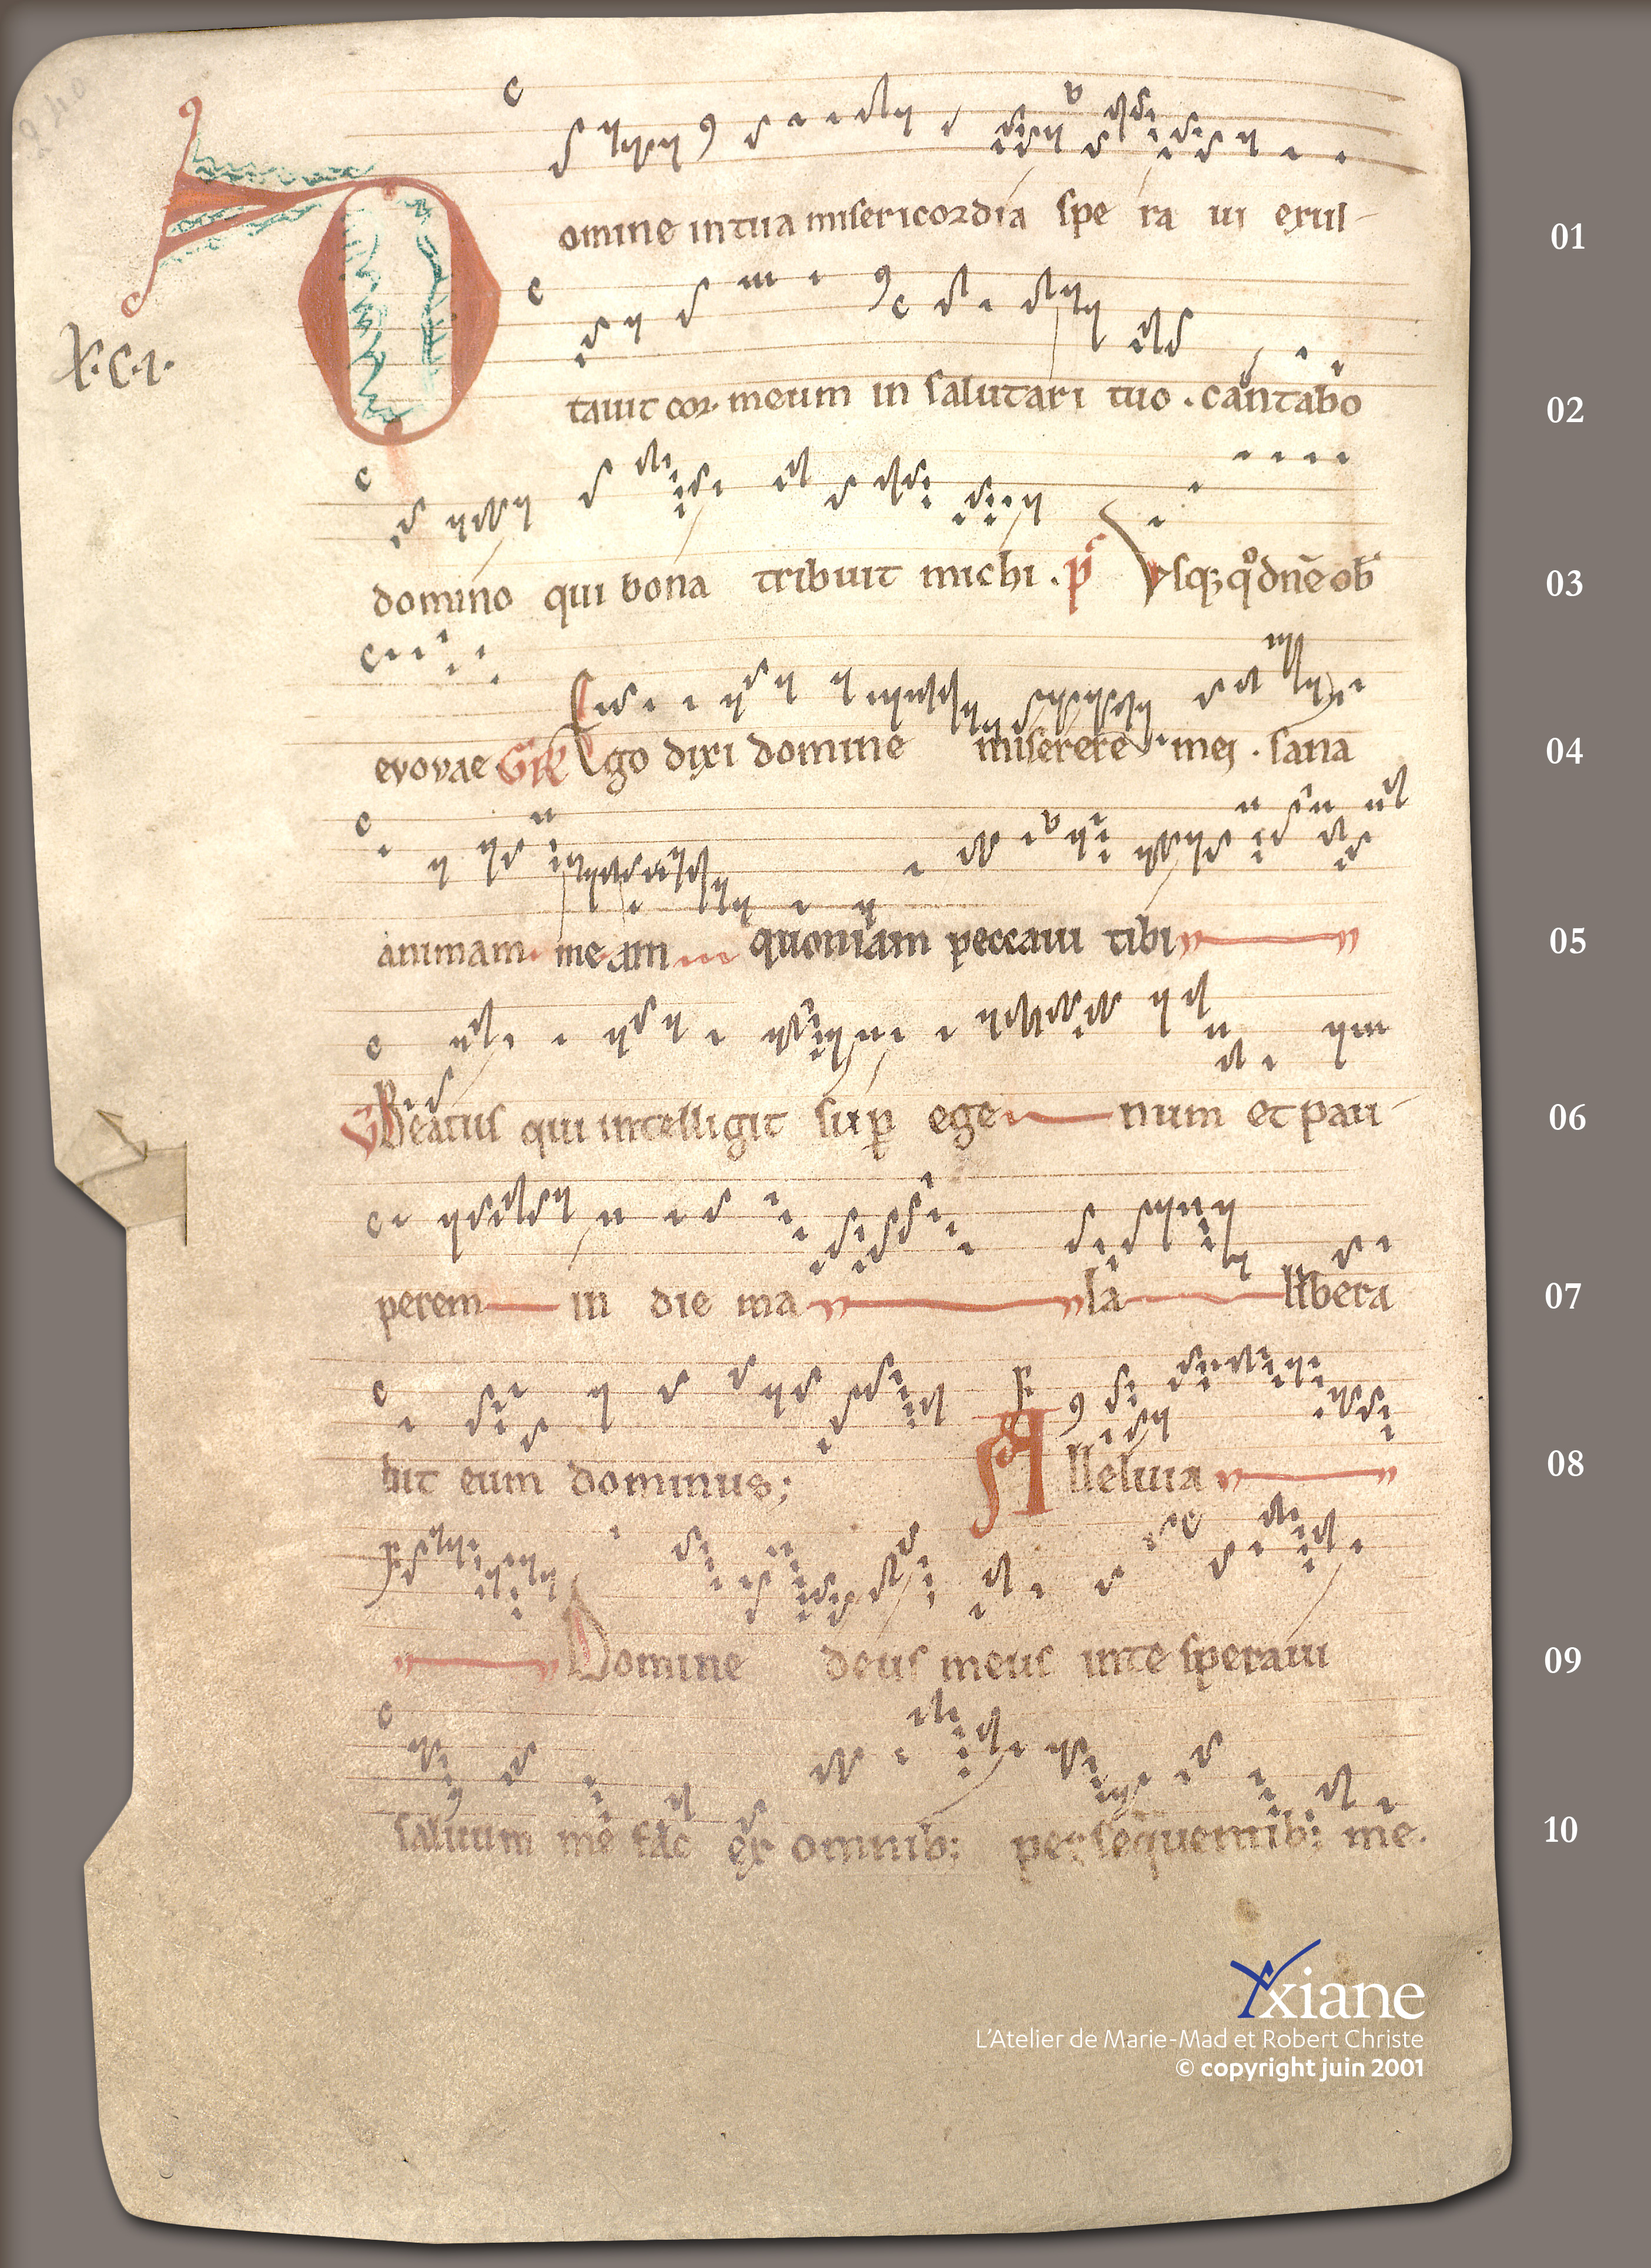 240
Domine in tua misericordia spe ra ui exul- 01
.X.C.I.
tauit cor meum in salutari tuo . cantabo 02
domino qui bona tribuit michi . p̄s Vsq;q̊ dñe ob 03
evovae GR̄ Ego dixi domine miserere mei . sana 04
animam meam quoniam peccaui tibi 05
V Beatus qui intelligit sup ege num et pau- 06
perem in die ma la libera 07
bit eum dominus; Alleluia 08
Domine deus meus in te speraui 09
saluum me fac ex omnib; persequentib; me. 10
Yxiane
L'Atelier de Marie-Mad et Robert Christe
© copyright juin 2001